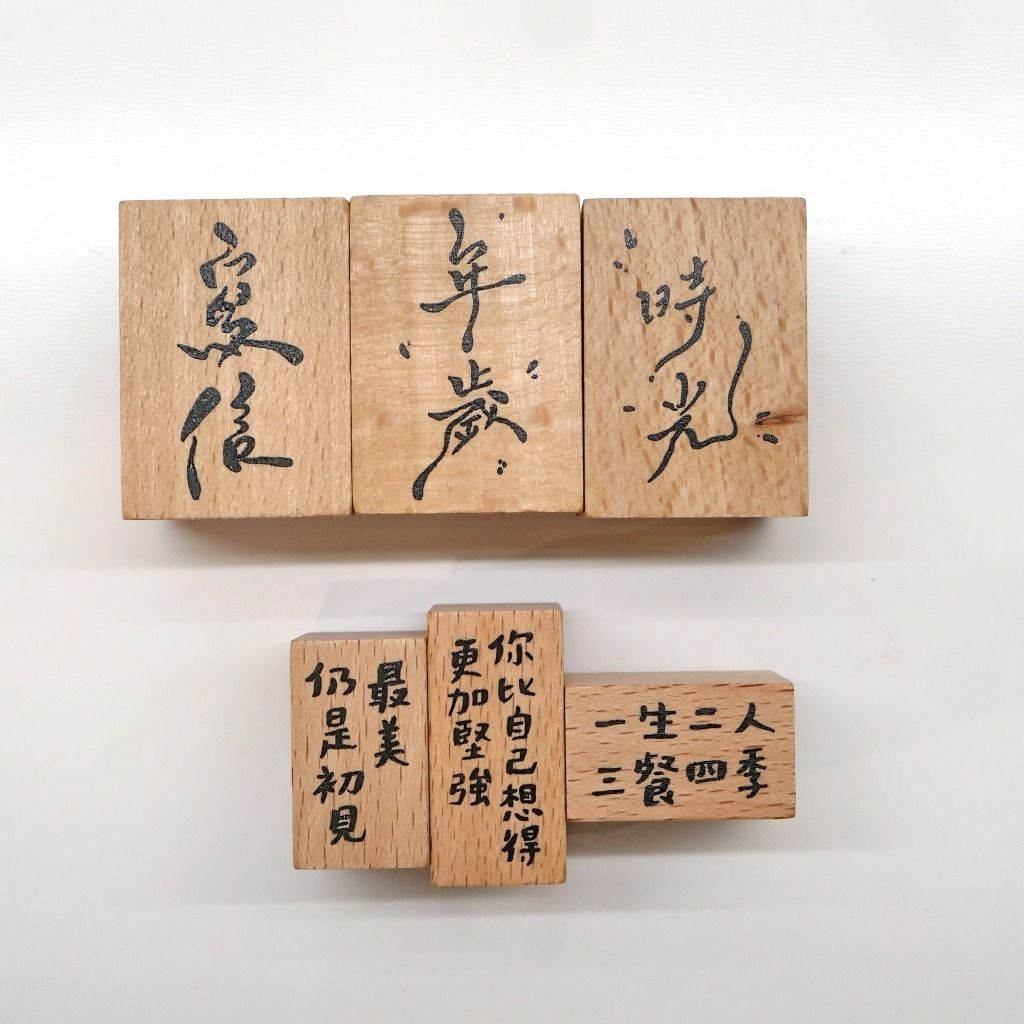 寫信
年歲
時光
最美
仍是初見
你比自己想得
更加堅強
一生二人
三餐四季